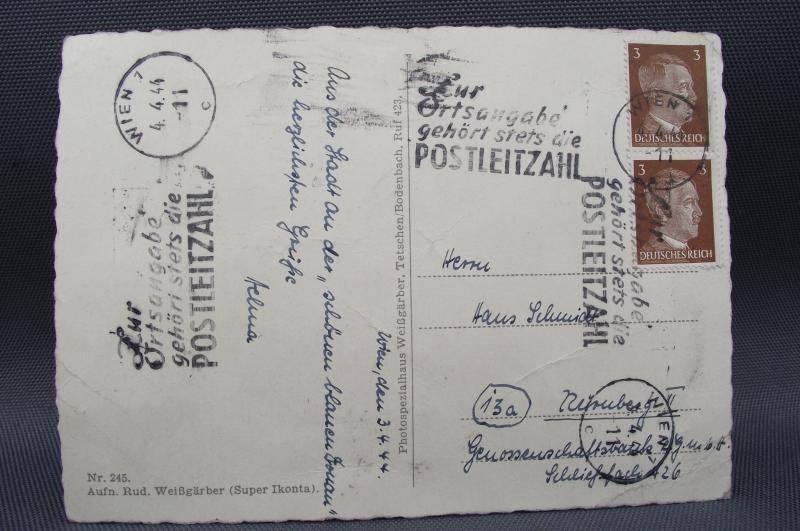 WIEN 7
4.4.44
-11
c
Zur
Ortsangabe
gehört stets die
POSTLEITZAHL
Wien, den 3.4.44.
Aus der Stadt an der „schönen blauen Donau"
die herzlichsten Grüße
Helma
Nr. 245.
Aufn. Rud. Weißgärber (Super Ikonta).
Photospezialhaus Weißgärber, Tetschen/Bodenbach, Ruf 423.
Zur
Ortsangabe
gehört stets die
POSTLEITZAHL
3 3
DEUTSCHES REICH
3 3
DEUTSCHES REICH
WIEN
-11
gehört stets die
POSTLEITZAHL
Herrn
Hans Schmidt
13a Nürnberg
Genossenschaftsbank e.G.m.b.H.
Schließfach 426
WIEN 7
c